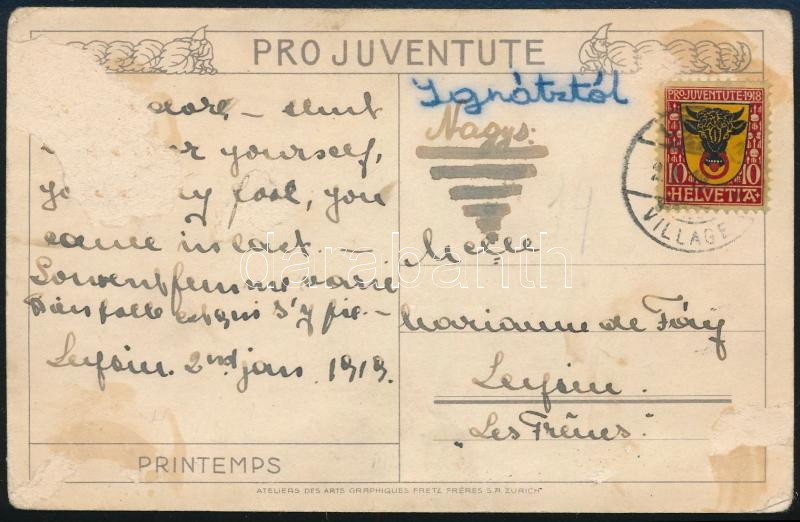 PRO JUVENTUTE
Ignátztól
Nagys:
PRO JUVENTUTE·1918
10 10
HELVETIA
VILLAGE
yourself,
fool, you
came in last —
Souvent femme varie
Bien folle est qui s'y fie —
Leysin. 2nd jan. 1919.
Melle
Marianne de Fáy
Leysin.
"Les Frênes."
PRINTEMPS
ATELIERS DES ARTS GRAPHIQUES FRETZ FRÈRES S.A. ZURICH
darabanth